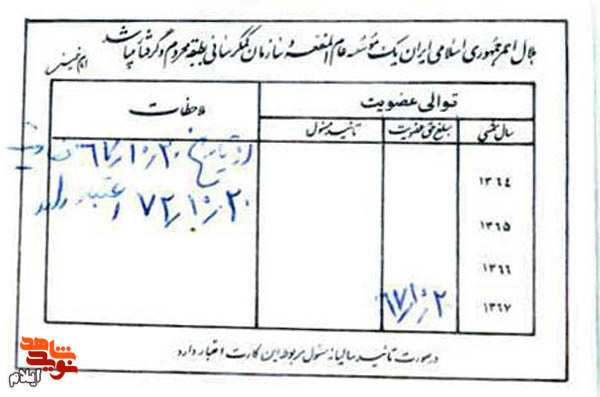 هلال احمر جمهوری اسلامی ایران یک مؤسسه عام المنفعه و سازمان کمک رسانی به طبقه محروم و گرفتار میباشد
امام خمینی
توالی عضویت
ملاحظات
سال شمسی
مبلغ حق عضویت
تائید مسئول
۱۳۶۴
۱۳۶۵
۱۳۶۶
۱۳۶۷
۶۷/۱۰/۲
از تاریخ ۶۷/۱۰/۲۰
۷۲/۱۰/۲۰ اعتبار دارد
درصورت تائید سالیانه مسئول مربوطه این کارت اعتبار دارد
نوید شاهد
ایلام